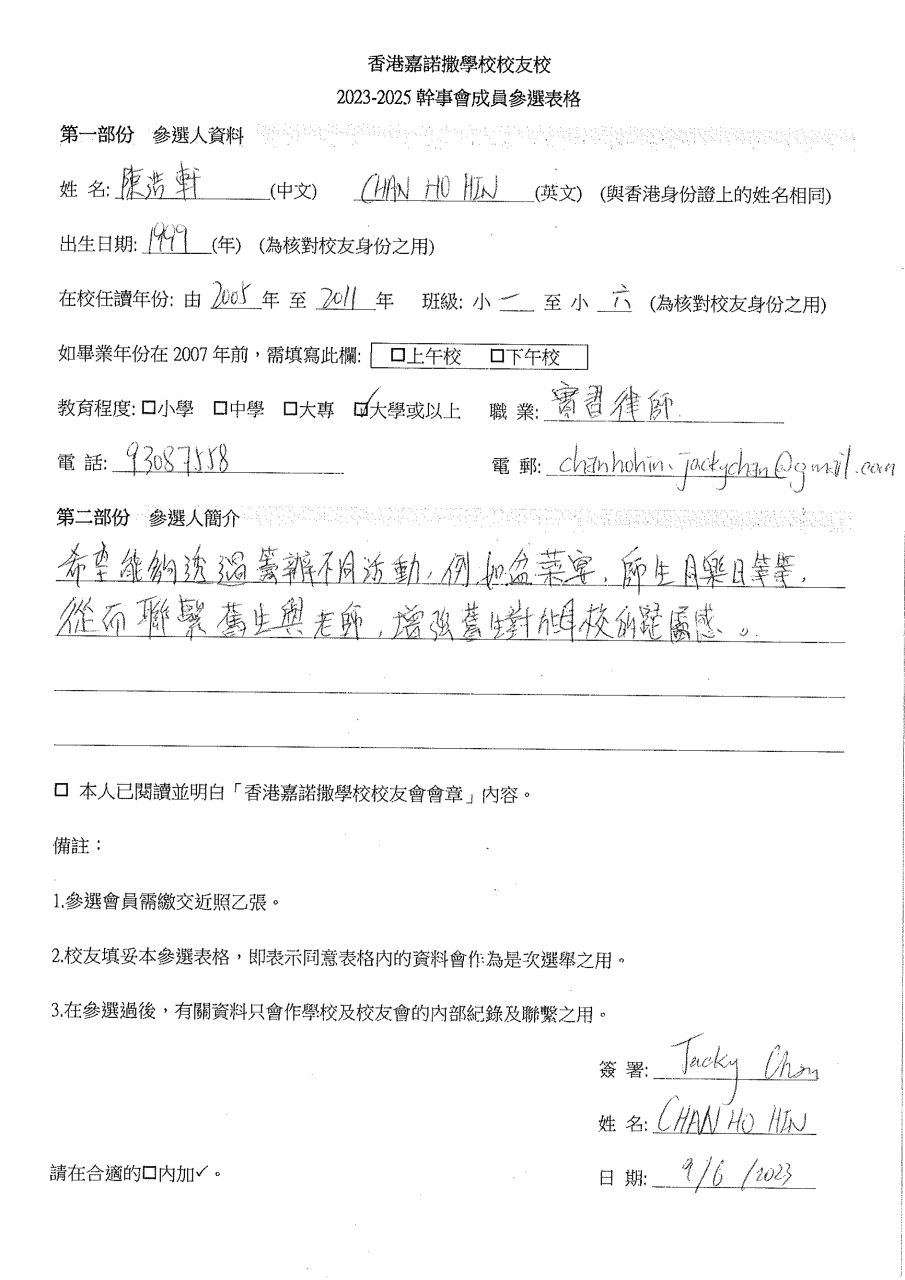 香港嘉諾撒學校校友校
2023-2025 幹事會成員參選表格
第一部份 參選人資料
姓 名: 陳浩軒 (中文) CHAN HO HIN (英文) (與香港身份證上的姓名相同)
出生日期: 1999 (年) (為核對校友身份之用)
在校任讀年份: 由 2005 年 至 2011 年 班級: 小 一 至 小 六 (為核對校友身份之用)
如畢業年份在 2007 年前，需填寫此欄: ☐上午校 ☐下午校
教育程度: ☐小學 ☐中學 ☐大專 ☑大學或以上 職 業: 實習律師
電 話: 93087558 電 郵: chanhohin.jackychan@gmail.com
第二部份 參選人簡介
希望能夠透過籌辦不同活動，例如盆菜宴，師生同樂日等等，
從而聯繫舊生與老師，增強舊生對於母校的歸屬感。
☐ 本人已閱讀並明白「香港嘉諾撒學校校友會會章」內容。
備註：
1.參選會員需繳交近照乙張。
2.校友填妥本參選表格，即表示同意表格內的資料會作為是次選舉之用。
3.在參選過後，有關資料只會作學校及校友會的內部紀錄及聯繫之用。
簽 署: Jacky Chan
姓 名: CHAN HO HIN
請在合適的☐內加✓。
日 期: 9/6/2023